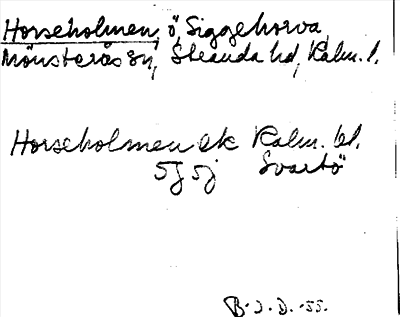 Horseholmen, ö, Siggehorva,
Mönsterås sn, Stranda hd, Kalm. l.
Horseholmen ek Kalm. bl.
5J 5j Svartö
B. J. D. -55.